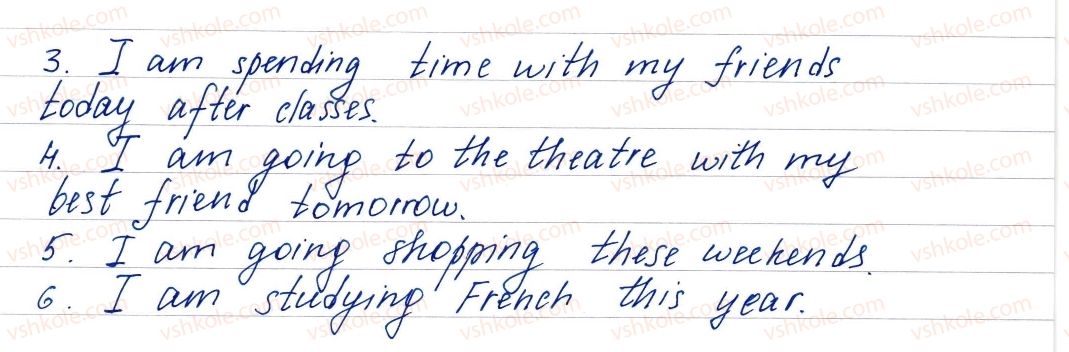 3. I am spending time with my friends
today after classes.
4. I am going to the theatre with my
best friend tomorrow.
5. I am going shopping these weekends.
6. I am studying French this year.